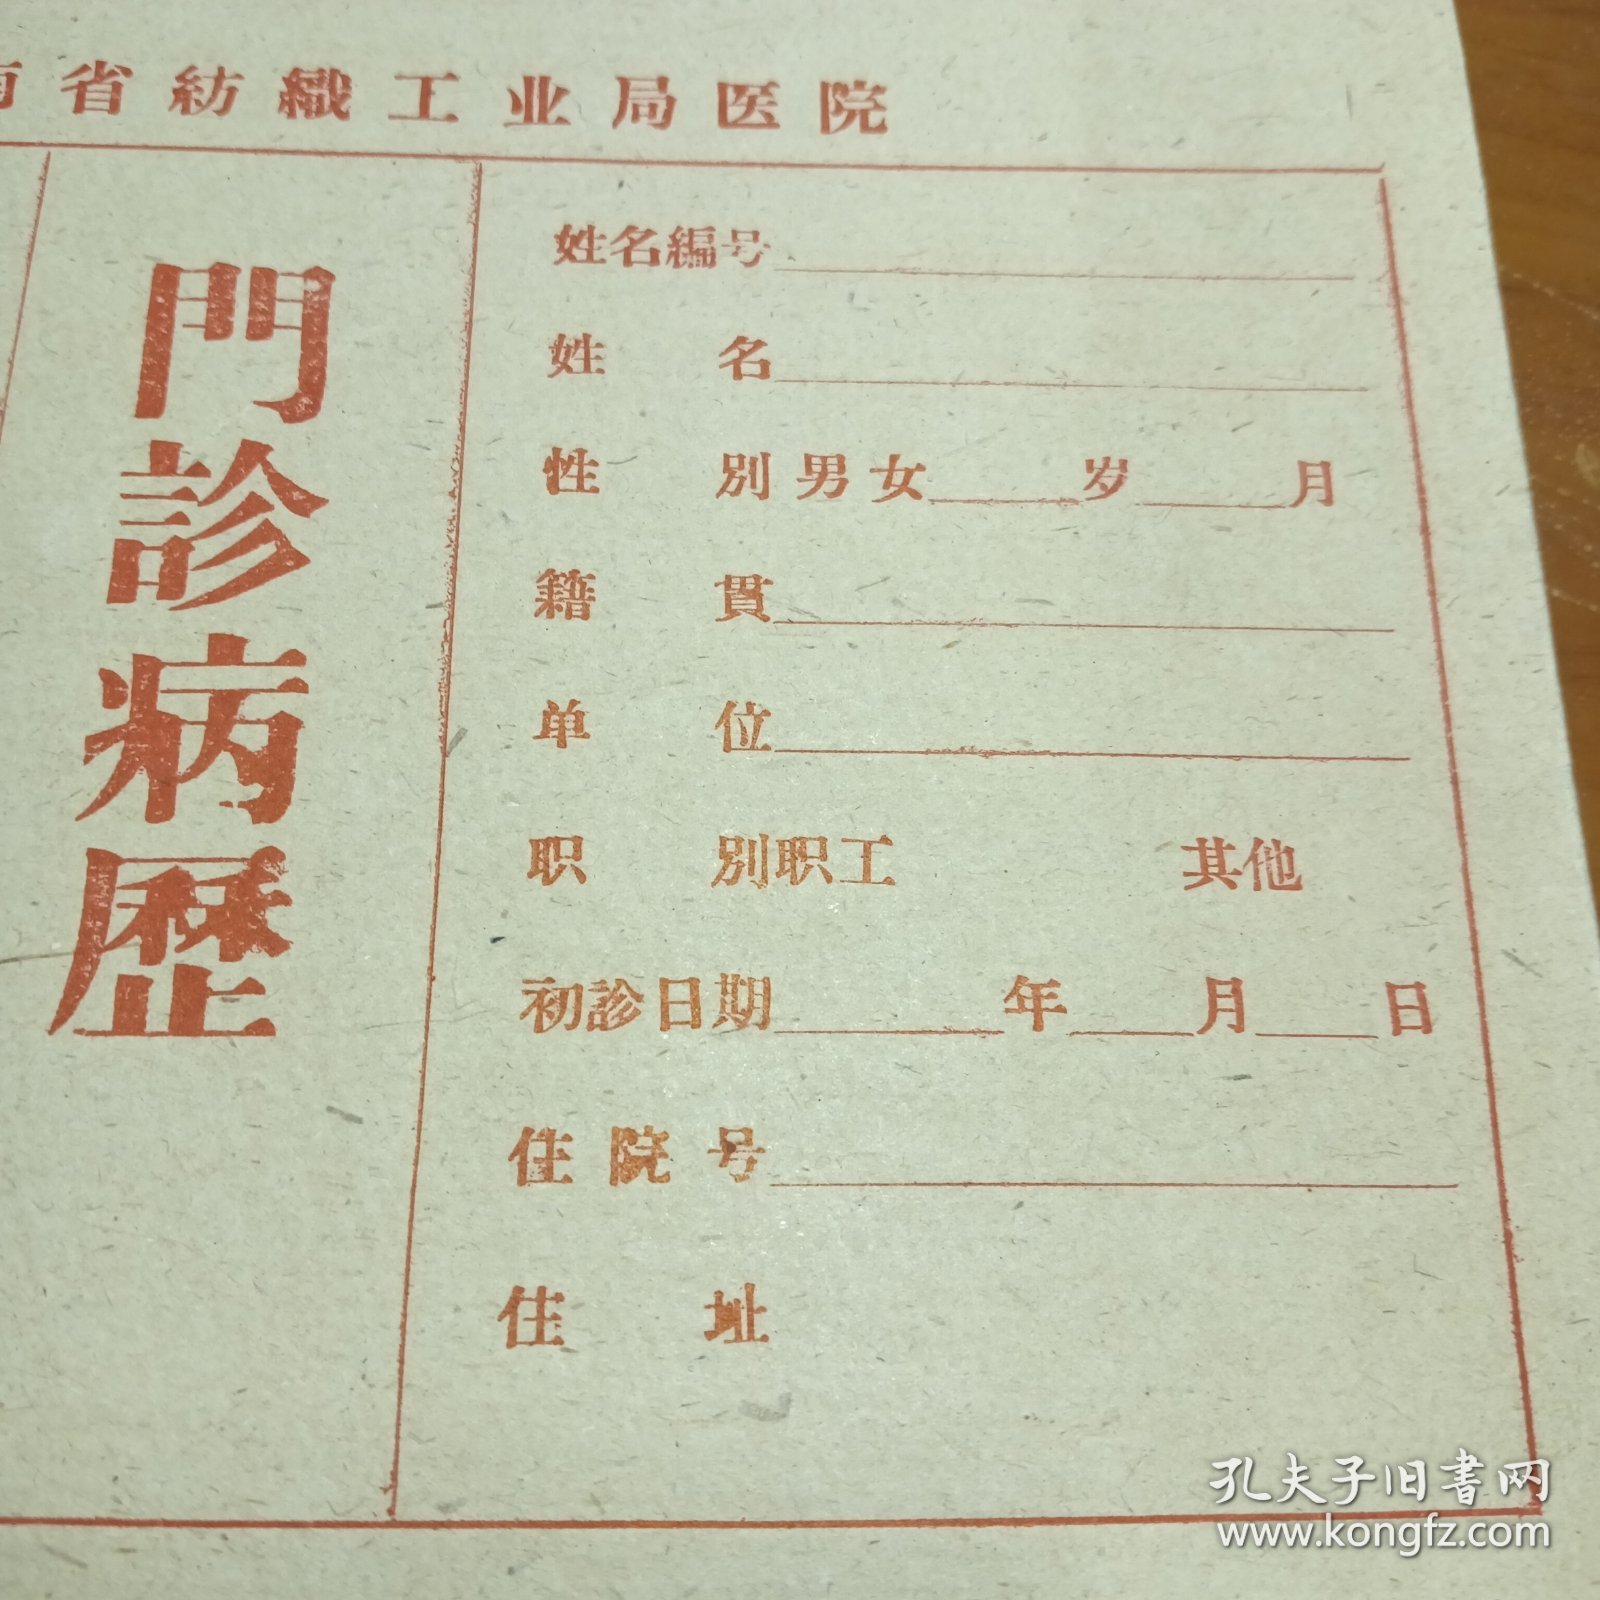 南省紡織工业局医院
門診病歷
姓名編号
姓名
性別 男 女 岁 月
籍貫
单位
职別 职工 其他
初診日期 年 月 日
住院号
住址
孔夫子旧書网
www.kongfz.com